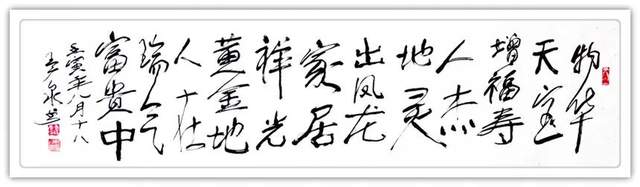 物华
天宝
增福寿
人杰
地灵
出凤龙
家居
祥光
黄金地
人
瑞气
富貴中
壬寅年九月十八